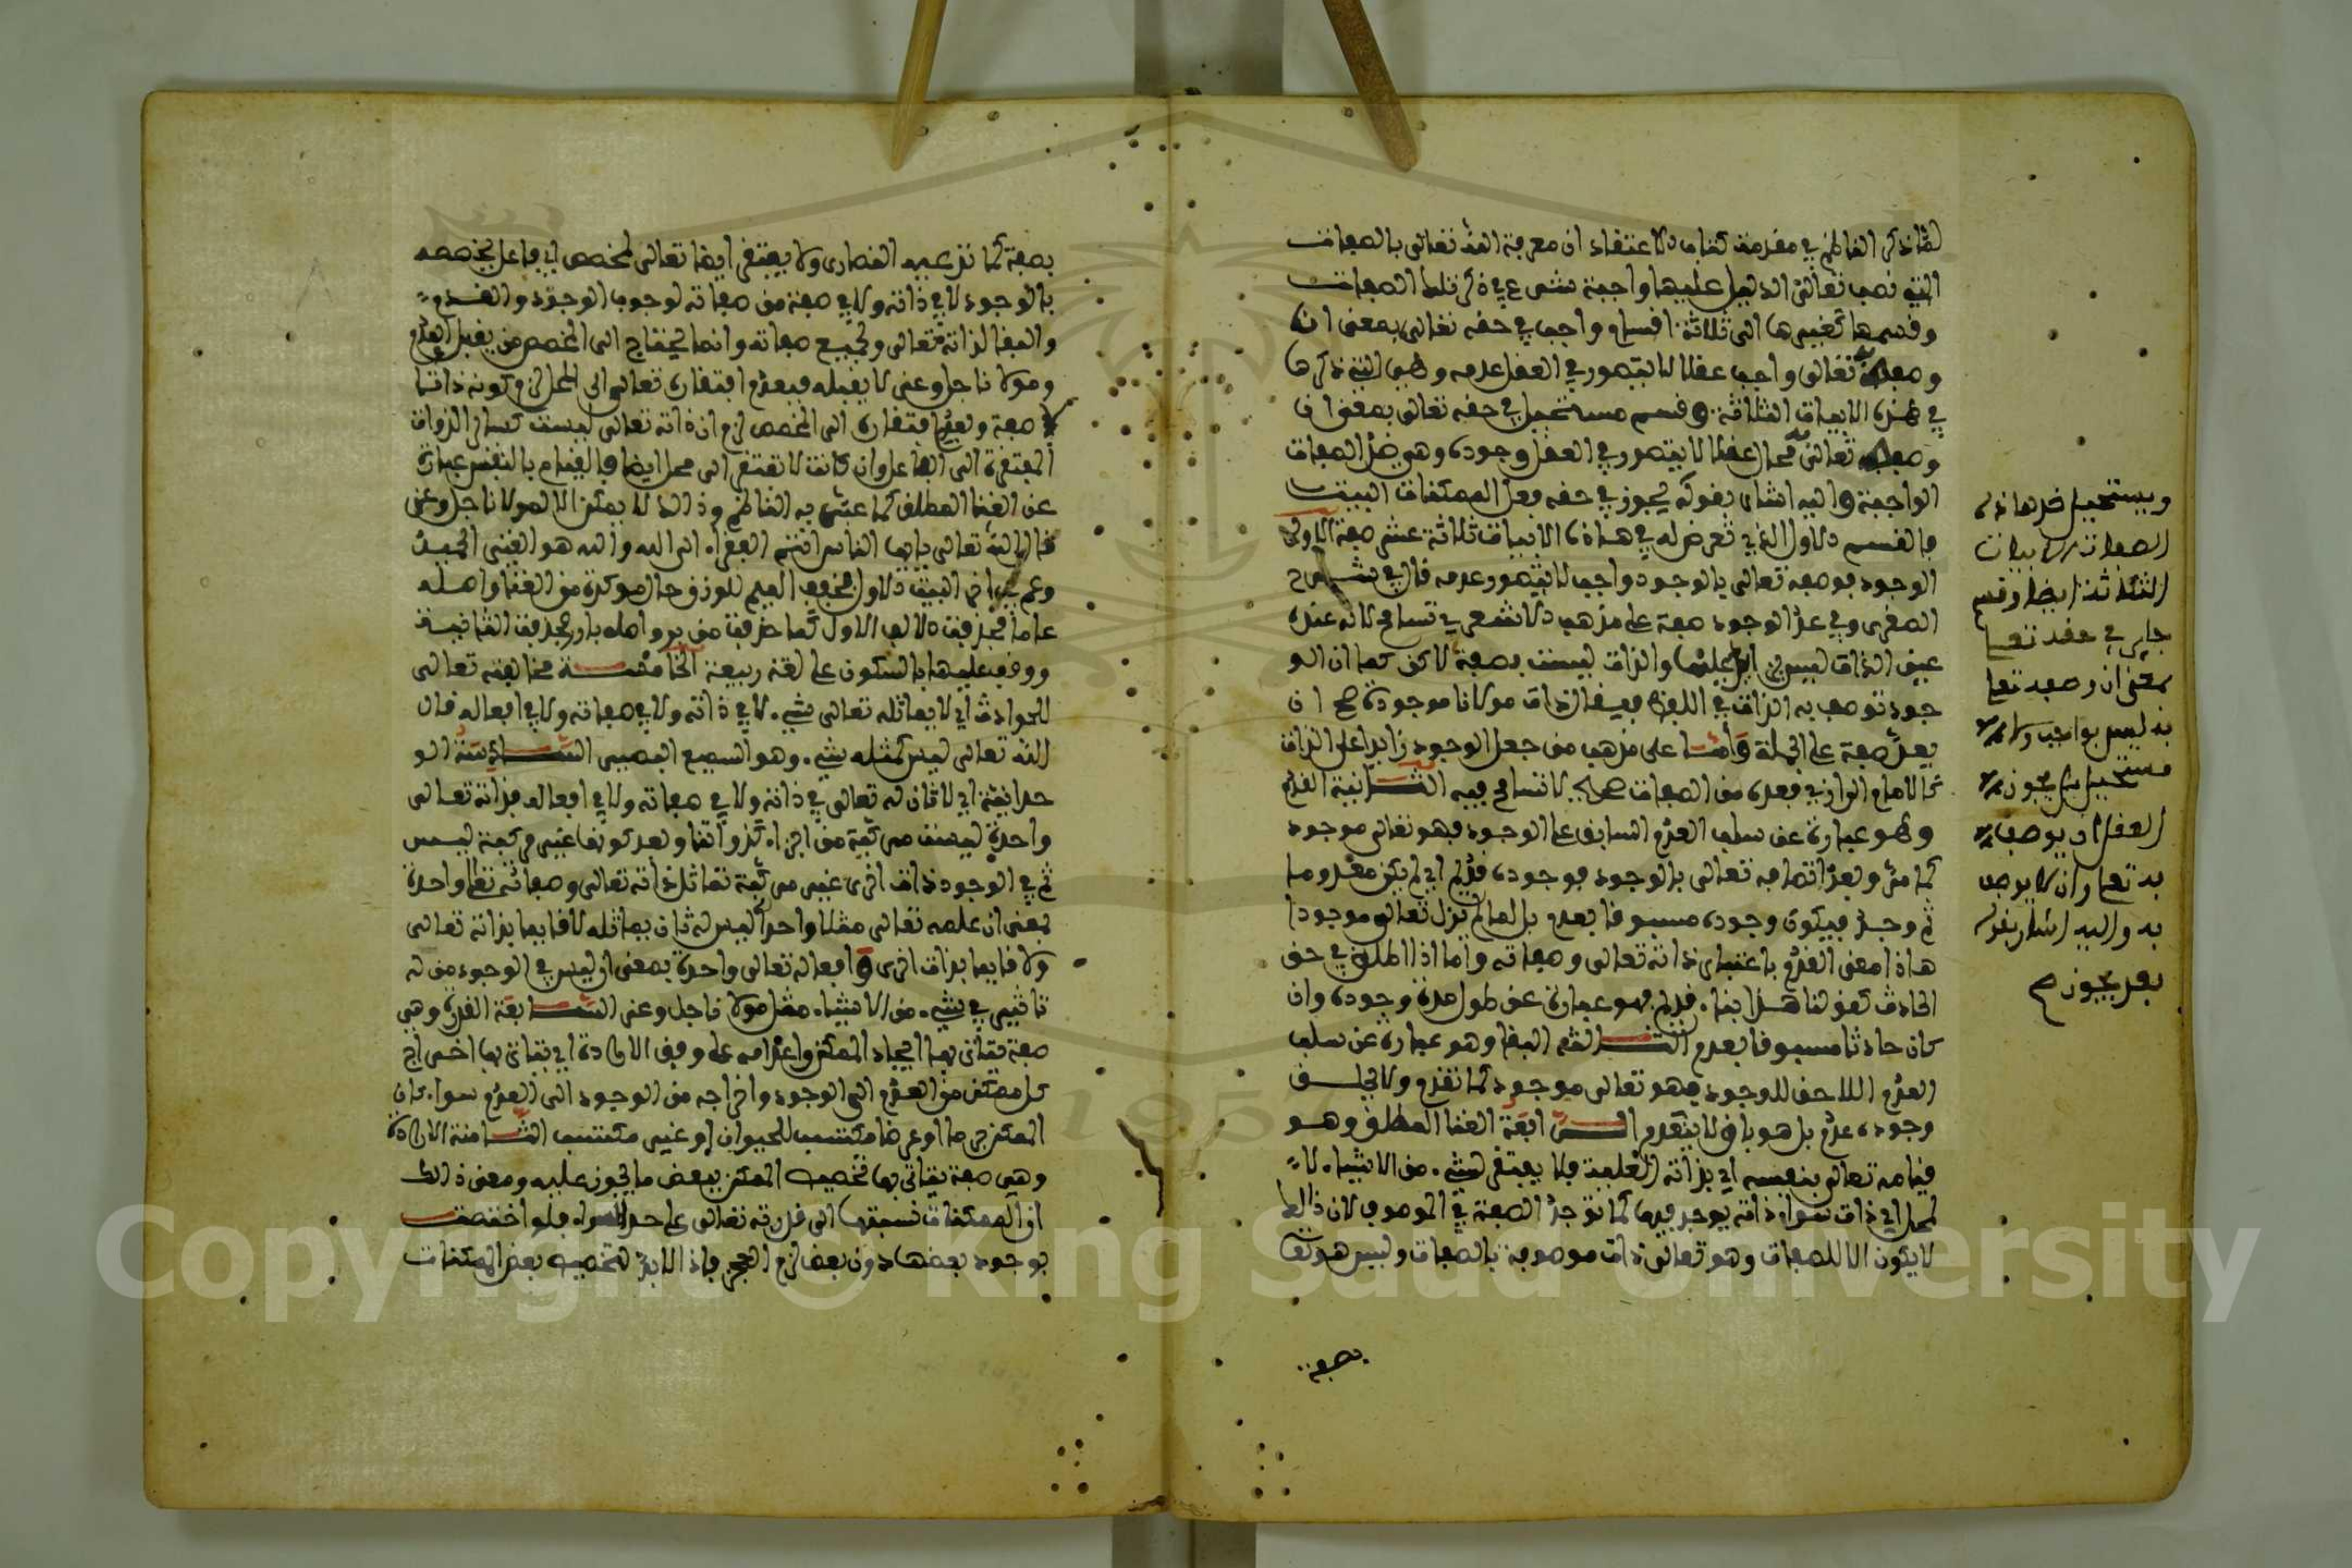 لما ذكر الناظم في مقدمة كتاب الاعتقاد ان معرفة الله تعالى بالصفات
التي نصب تعالى الدليل عليها واجبة شرع في ذكر تلك الصفات
وقسمها كغيرها الى ثلاثة اقسام واجب في حقه تعالى بمعنى ان
وصفه به تعالى واجب عقلا لا يتصور في العقل عدمه وهي التي ذكرها
في هذه الابيات الثلاثة وقسم مستحيل في حقه تعالى بمعنى ان
وصفه به تعالى محال عقلا لا يتصور في العقل وجوده وهي ضد الصفات
الواجبة واليه اشار بقوله يجوز في حقه فعل الممكنات البيت
فالقسم الاول الذي تعرض له في هذه الابيات ثلاثة عشر صفة الاولى
الوجود فوصفه تعالى بالوجود واجب لا يتصور عدمه قال في شرح
الصغرى وفي عد الوجود صفة على مذهب الاشعري تسامح لانه عنده
عين الذات ليس بزايد عليها والذات ليست بصفة لاكن لما ان الو
جود توصف به الذات في اللفظ فيقال ذات مولانا موجودة صح ان
يعد صفة على الجملة وامـا على مذهب من جعل الوجود زايدا على الذات
كالامام الرازي فعده من الصفات صحيح لا تسامح فيه الثـانية القدم
وهو عبارة عن سلب العدم السابق على الوجود فهو تعالى موجود
كما مر وبعد اتصافه تعالى بالوجود فوجوده قديم اي لم يكن معدوما
ثم وجد فيكون وجوده مسبوقا بعدم بل لم يزل تعالى موجودا
هاذا معنى القدم باعتبار ذاته تعالى وصفاته واما اذا اطلق في حق
الحادث كقولنا هذا بناء قديم فهو عبارة عن طول مدة وجوده وان
كان حادثا مسبوقا بعدم الثـالثة البقا وهو عبارة عن سلب
العدم اللاحق للوجود فهو تعالى موجود كما تقدم ولا يلحـق
وجوده عدم بل هو باق لا ينعدم الـرابعة الغنا المطلق وهـو
قيامه تعالى بنفسه اي بذاته العلية فلا يفتقر لشيء من الاشياء لا
لمحل اي ذات سوا ذاته يوجد فيها كما توجد الصفة في الموصوف لان ذالك
لا يكون الا للصفات وهو تعالى ذات موصوفة بالصفات وليس هو تعالى
بصفة
ويستحيل ضد هاذه
الصفات في الابيات
الثلاثة ايضا وقسم
جايز في حقه تعلى
بمعنى ان وصفه تعلى
به ليس بواجب ولا
مستحيل بل يجوز في
العقل ان يوصف
به تعلى وان لا يوصف
به واليه اشار بقوله
بعد يجوز صح
بصفة كما تزعمه النصارى ولا يفتقر ايضا تعالى لمخصص اي فاعل يخصصه
بالوجود لا في ذاته ولا في صفة من صفاته لوجوب الوجود والقـدم
والبقا لذاته تعالى ولجميع صفاته وانما يحتاج الى المخصص من يقبل العدم
ومولانا جل وعز لا يقبله فبعدم افتقاره تعالى الى المحل لزم كونه ذاتا
لا صفة وبعدم افتقاره الى المخصص لزم ان ذاته تعالى ليست كساير الذوات
المفتقرة الى الفاعل وان كانت لا تفتقر الى محل ايضا فالقيام بالنفس عبارة
عن الغنا المطلق كما عبر به الناظم وذالك لا يمكن الا لمولانا جل وعز
قال الله تعالى يا ايها الناس انتم الفقراء الى الله والله هو الغني الحميد
عاما فحذفت الالف الاولى كما حذفت من بر واصله بار وحذفت الثانيـة
ووقف عليها بالسكون على لغة ربيعة الخامسـة مخالفته تعالى
للحوادث اي لا يماثله تعالى شيء لا في ذاته ولا في صفاته ولا في افعاله قال
الله تعالى ليس كمثله شيء وهو السميع البصير السـادسة الو
حدانية اي لا ثان له تعالى في ذاته ولا في صفاته ولا في افعاله فذاته تعالى
واحدة ليست مركبة من اجزاء كذواتنا وبعد كونها غير مركبة ليـس
ثم في الوجود ذات اخرى غير مركبة تماثل ذاته تعالى وصفاته تعلى واحدة
بمعنى ان علمه تعالى مثلا واحد ليس له ثان يماثله لا قايما بذاته تعالى
ولا قايما بذات اخرى وافعاله تعالى واحدة بمعنى ان ليس في الوجود من له
تاثير في شيء من الاشياء مثل مولانا جل وعز السـابعة القدرة وهي
صفة يتاتى بها ايجاد الممكن واعدامه على وفق الارادة اي يتاتى بها اخراج
كل ممكن من العدم الى الوجود واخراجه من الوجود الى العدم سواء كان
الممكن جرما او عرضا مكتسب للحيوان او غير مكتسب الثـامنة الارادة
وهي صفة يتاتى بها تخصيص الممكن ببعض ما يجوز عليه ومعنى ذالك
ان الممكنات نسبتها الى قدرته تعالى على حد السواء فلو اختصت
بوجود بعضها دون بعض لزم العجز فاذا لا بد لتخصيص بعض الممكنات
Copyright © King Saud University
1957